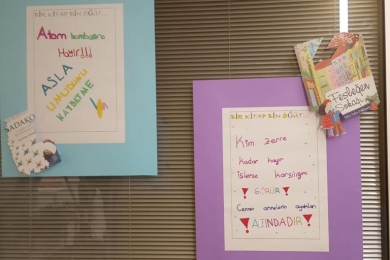 BİR KİTAP BİN ÖĞÜT...
Atom bombasına
Hayır!!!
ASLA
UMUDUNU
KAYBETME
SADAKO
BİR KİTAP BİN ÖĞÜT...
Kim zerre
kadar hayır
işlerse karşılığını
GÖRÜR
Cennet annelerin ayakları
ALTINDADIR
Fesleğen
Sokağı